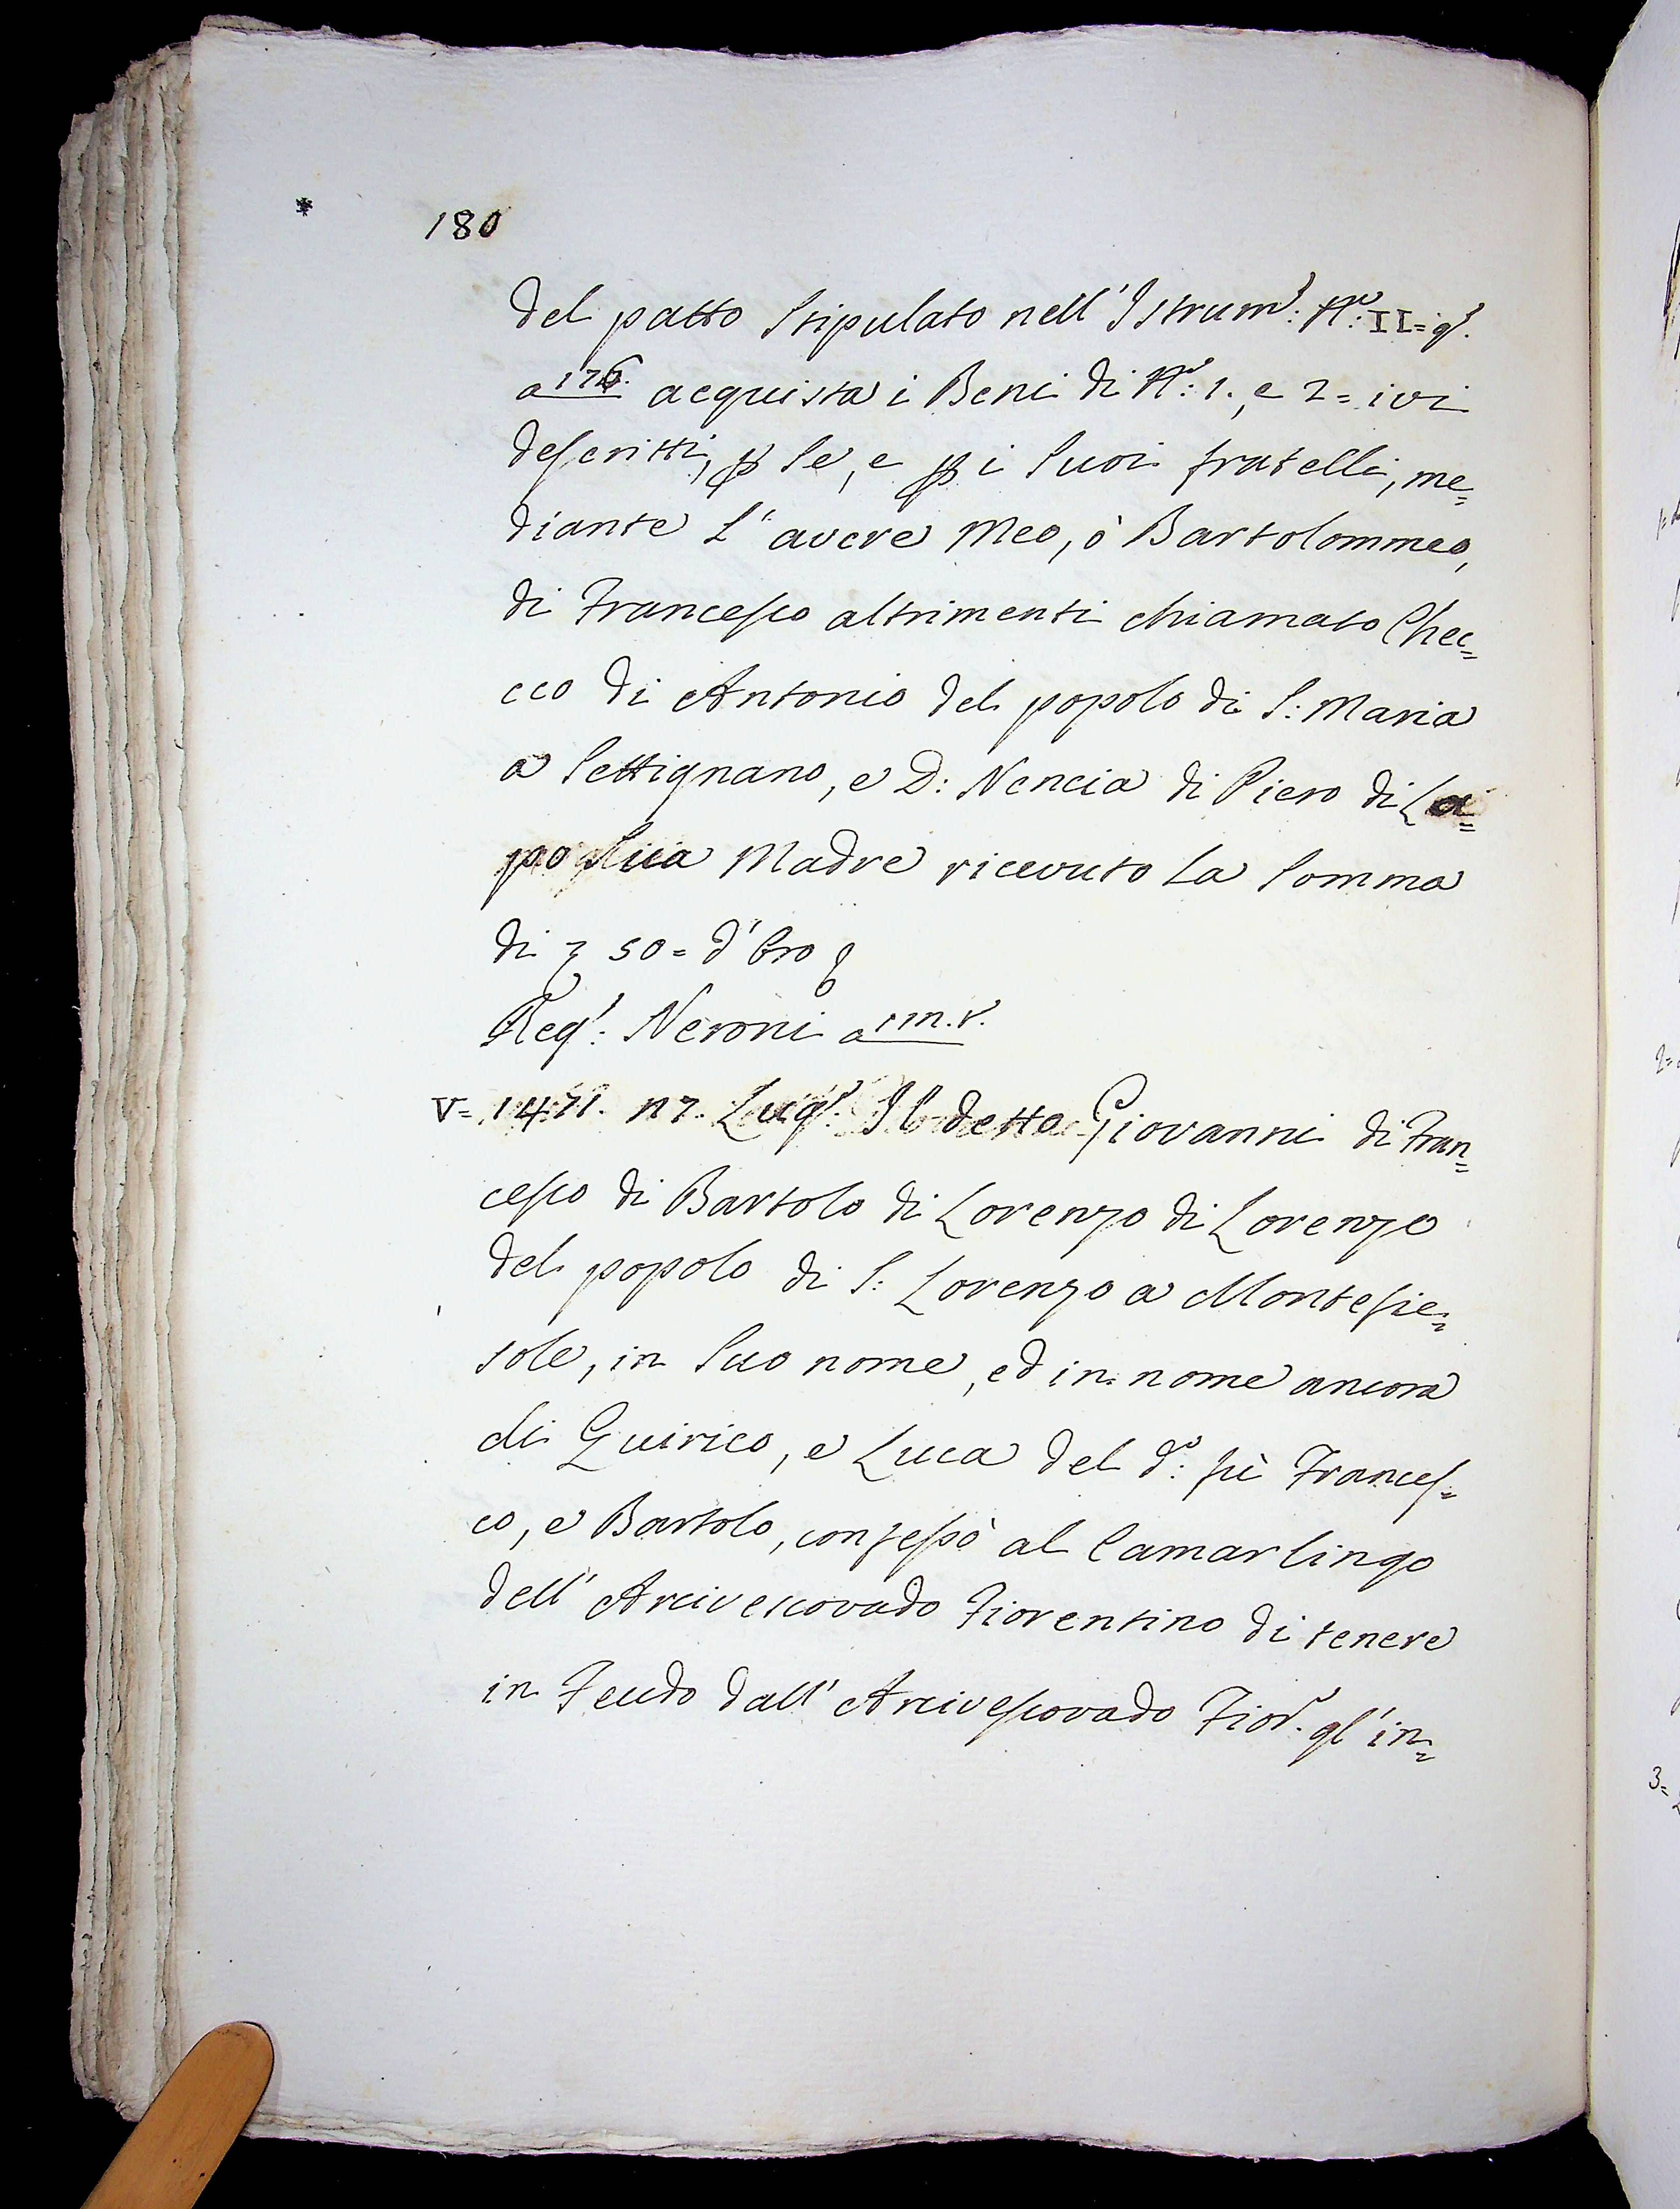 180
del patto Stipulato nell'Istrum: N: II= q
a 176. acquista i Beni di N: 1., e 2= ivi
descritti, p Se, e p i Suoi fratelli, me=
diante l'avere Meo, ò Bartolommeo,
di Francesco altrimenti chiamato Chec=
cco di Antonio del popolo di S: Maria
a Settignano, e D: Nencia di Piero di La=
po Sua Madre ricevuto la Somma
di 50= d'Oro
Reg: Neroni a
V= 1471. Lug. Il detto Giovanni di Fran=
cesco di Bartolo di Lorenzo di Lorenzo
del popolo di S: Lorenzo a Montefie=
sole, in Suo nome, ed in nome ancora
di Quirico, e Luca del d: fù Frances=
co, e Bartolo, confessò al Camarlingo
dell'Arcivescovado Fiorentino di tenere
in Feudo dall'Arcivescovado Fior. gl'in=